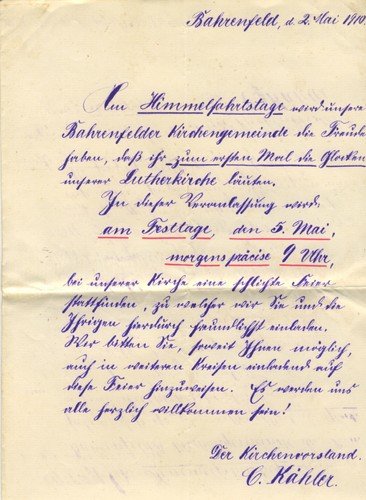 Bahrenfeld, d. 2. Mai 1910.
Am Himmelfahrtstage wird unsere
Bahrenfelder Kirchengemeinde die Freude
haben, daß ihr zum ersten Mal die Glocken
unserer Lutherkirche läuten.
In dieser Veranlassung wird
am Festtage, den 5. Mai,
morgens präcise 9 Uhr,
bei unserer Kirche eine schlichte Feier
stattfinden, zu welcher wir Sie und die
Ihrigen hierdurch freundlichst einladen.
Wir bitten Sie, soweit Ihnen möglich,
auch in weiteren Kreisen einladend auf
diese Feier hinzuweisen. Es werden uns
alle herzlich willkommen sein!
Der Kirchenvorstand.
C. Kähler.